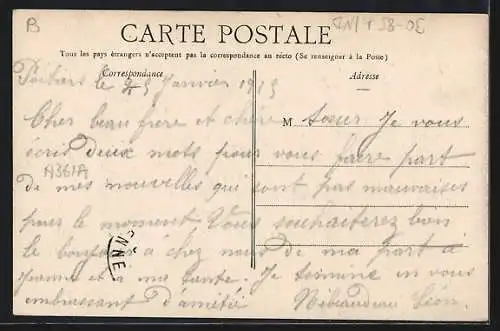 B
CARTE POSTALE
Tous les pays étrangers n'acceptent pas la correspondance au recto (Se renseigner à la Poste)
Correspondance
Adresse
Poitiers le 25 Janvier 1915
Cher beau frere et chere M soeur Je vous
écris deux mots pour vous faire part
A361A
de mes nouvelles qui sont pas mauvaises
pour le moment Vous souhaiterez bien
le bonjour à chez nous de ma part à
et à ma tante. Je termine en vous
embrassant d'amitié Léon.
ENN